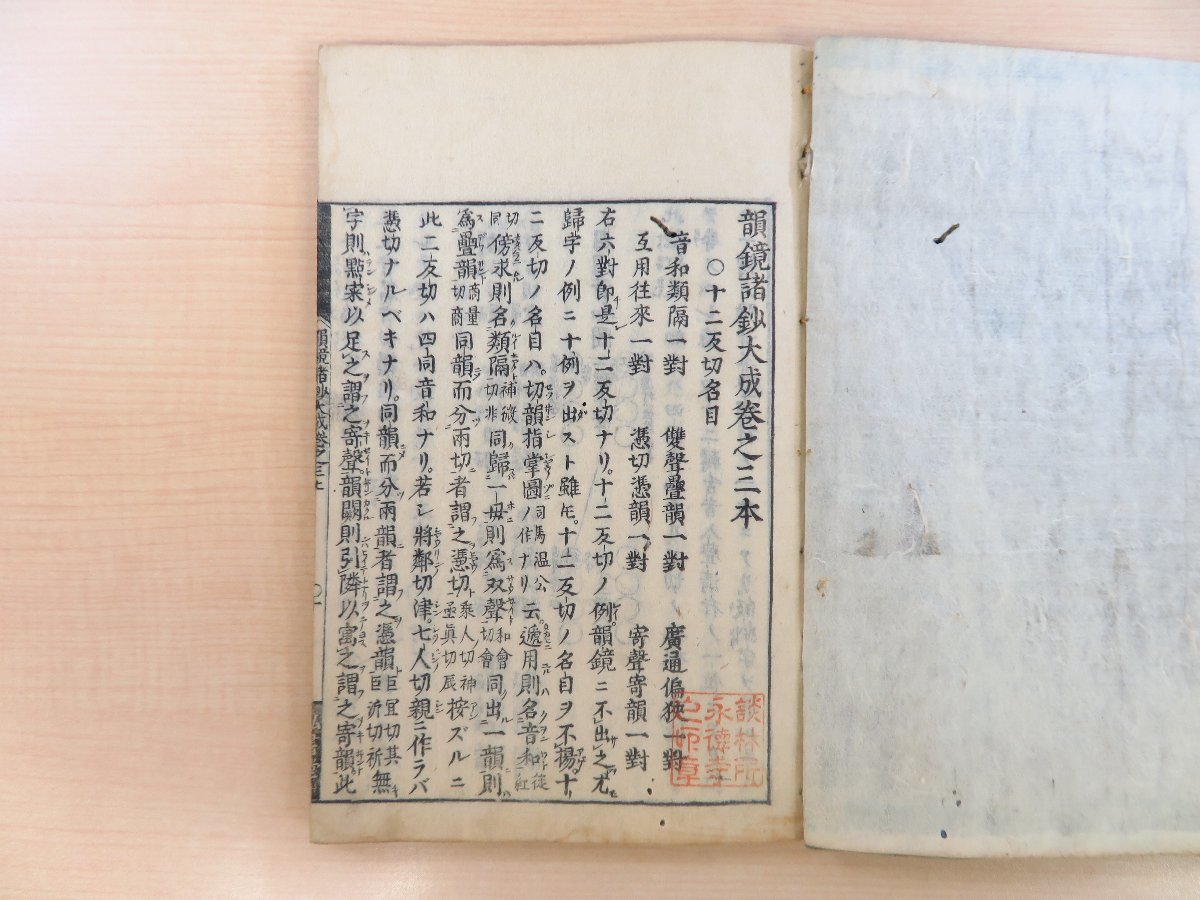 韻鏡諸鈔大成卷之三本
○十二反切名目
音和類隔一對 雙聲疊韻一對 廣通偏狹一對
互用往來一對 憑切憑韻一對 寄聲寄韻一對
右六對即是十二反切ナリ。十二反切ノ例韻鏡ニ不出之尤
歸字ノ例ニ十例ヲ出スト雖モ。十二反切ノ名目ヲ不揚十
二反切ノ名目ハ。切韻指掌圖ノ作ナリ司馬温公云。遞用則名音和徒紅
切同傍求則名類隔補微切非同歸一母則爲双聲和會切會同出一韻則
爲疊韻商量切商同韻而分兩切者謂之憑切乘人切神丞眞切辰按ズルニ
此二反切ハ四同音和ナリ。若シ將鄰切津。七人切親ニ作ラバ
憑切ナルベキナリ。同韻而分兩韻者謂之憑韻巨宜切其巨祈切祈無
字則點窠以足之謂之寄聲韻闕則引隣以寓之謂之寄韻此
韻鏡諸鈔大成卷之三上
談林所
永德寺
之師章